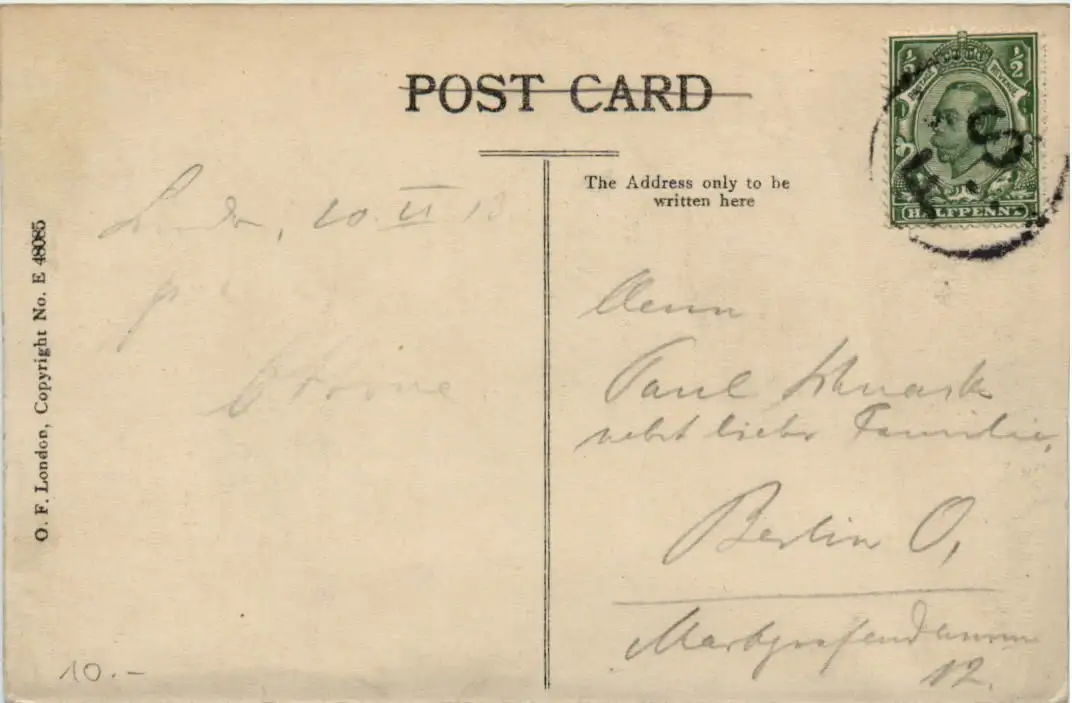 POST CARD
The Address only to be
written here
½ POSTAGE REVENUE ½
HALFPENNY
O. F. London, Copyright No. E 48085
London, 20. VI 13
Herrn
Paul
nebst lieber Familie,
Berlin O,
Markgrafendamm
12.
10.-